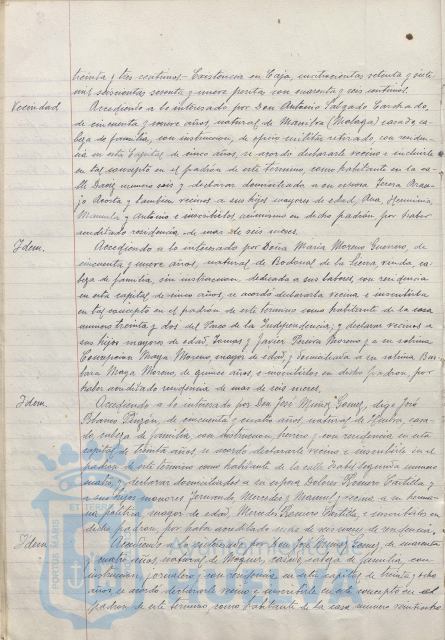 treinta y tres centimos.- Existencia en Caja, cuatrocientas setenta y siete
mil seiscientas sesenta y nueve pesetas con cuarenta y seis centimos.
Vecindad Accediendo a lo interesado por Don Antonio Salgado Cardado,
de cincuenta y nueve años, natural de Manilva (Malaga) casado, ca-
beza de familia, con instruccion, de oficio militar retirado, con residen-
cia en esta Capital de cinco años, se acordo declararle vecino e incluirle
en tal concepto en el padron de este termino, como habitante en la ca-
lle Daoiz numero seis y declarar domiciliada a su esposa Teresa Arau-
jo Acosta y tambien vecinos a sus hijos mayores de edad, Ana, Herminia,
Manuela y Antonio e inscribirlos asimismo en dicho padrón por haber
acreditado residencia de mas de seis meses.
Idem. Accediendo a lo interesado por Doña Maria Moreno Guerrero, de
cincuenta y nueve años, natural de Bodonal de la Sierra, viuda, ca-
beza de familia, sin instruccion, dedicada a sus labores, con residencia
en esta capital de cinco años, se acordó declararla vecina e inscribirla
en tal concepto en el padron de este termino como habitante de la casa
numero treinta y dos del Paseo de la Independencia; y declarar vecinos a
sus hijos mayores de edad, Tomas y Javier Pereira Moreno y a su sobrina
Concepcion Maya Moreno, mayor de edad, y domiciliada a su sobrina Bar-
bara Maya Moreno, de quince años e inscribirlos en dicho padron, por
haber acreditado residencia de mas de seis meses.
Idem. Accediendo a lo interesado por Don José Muñoz Gomez, digo José
Blanco Pinzón, de cincuenta y cuatro años, natural de Huelva, casa-
do, cabeza de familia, con instruccion, herrero y con residencia en esta
capital de treinta años, se acordo declararle vecino e inscribirle en el
padron de este termino como habitante de la calle Isabel segunda numero
cuatro, y declarar domiciliados a su esposa Dolores Romero Portilla y
a sus hijos menores Fernando, Mercedes y Manuel y vecina a su herma-
na politica mayor de edad, Mercedes Romero Portilla e inscribirlos en
dicho padron, por haber acreditado mas de seis meses de residencia.
Idem Accediendo a lo interesado por Don José Gomez, de cuarenta
y cuatro años, natural de Moguer, casado, cabeza de familia, con
instruccion, jornalero, con residencia en esta capital de treinta y ocho
años se acordo declararle vecino e inscribirle en tal concepto en el
padron de este termino como habitante de la casa numero veintiocho
PORTUS MARIS ET
Ayuntamiento de